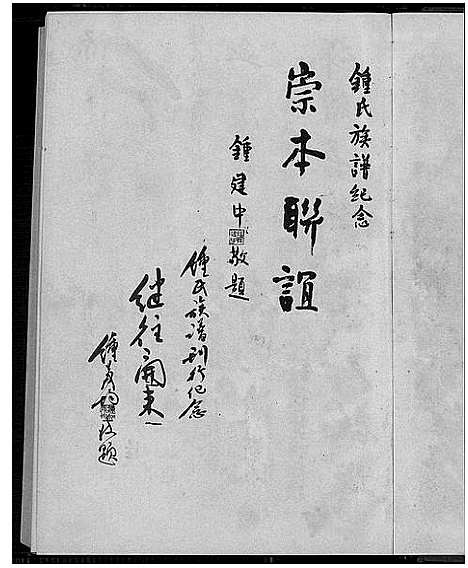 鍾氏族譜紀念
崇本聯誼
鍾建中敬題
鍾氏族譜刊行纪念
继往開来
鍾
題